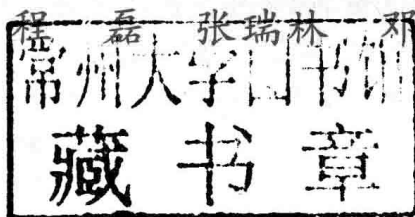 程 磊 张瑞林 邓
常州大学图书馆
藏书章